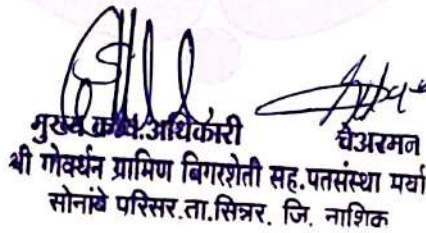 मुख्य कार्य.अधिकारी चेअरमन
श्री गोवर्धन ग्रामिण बिगरशेती सह.पतसंस्था मर्या
सोनांबे परिसर.ता.सिन्नर. जि. नाशिक